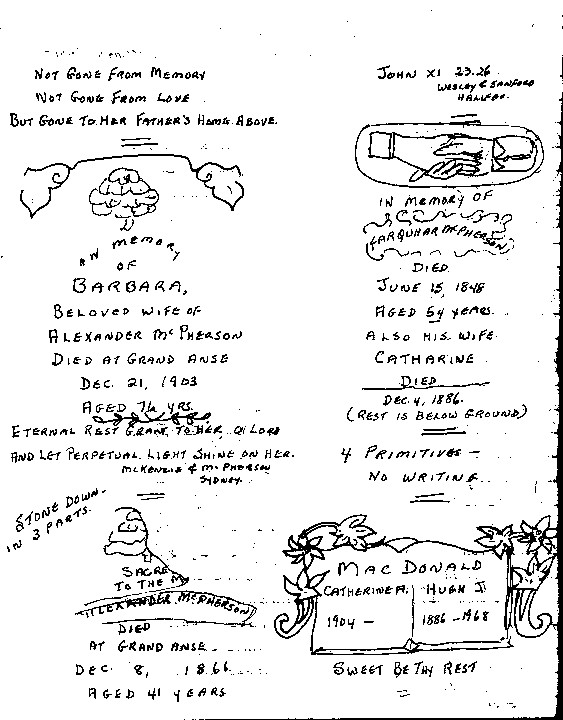 NOT GONE FROM MEMORY
NOT GONE FROM LOVE
BUT GONE TO HER FATHER'S HOME ABOVE.
IN MEMORY
OF
BARBARA,
BELOVED WIFE OF
ALEXANDER McPHERSON
DIED AT GRAND ANSE
DEC. 21, 1903
AGED 76 YRS.
ETERNAL REST GRANT TO HER, O! LORD
AND LET PERPETUAL LIGHT SHINE ON HER.
McKENZIE & McPHERSON
SYDNEY.
STONE DOWN-
IN 3 PARTS.
SACRE
TO THE M
ALEXANDER McPHERSON
DIED
AT GRAND ANSE
DEC 8, 1866
AGED 41 YEARS
JOHN XI 23.26
WESLEY & SANFORD
HALIFAX.
IN MEMORY OF
FARQUHAR McPHERSON
DIED
JUNE 15, 1848
AGED 54 YEARS
ALSO HIS WIFE
CATHARINE
DIED
DEC. 4, 1886.
(REST IS BELOW GROUND)
4 PRIMITIVES -
NO WRITING
MACDONALD
CATHERINE A. HUGH J.
1904 - 1886 - 1968
SWEET BE THY REST